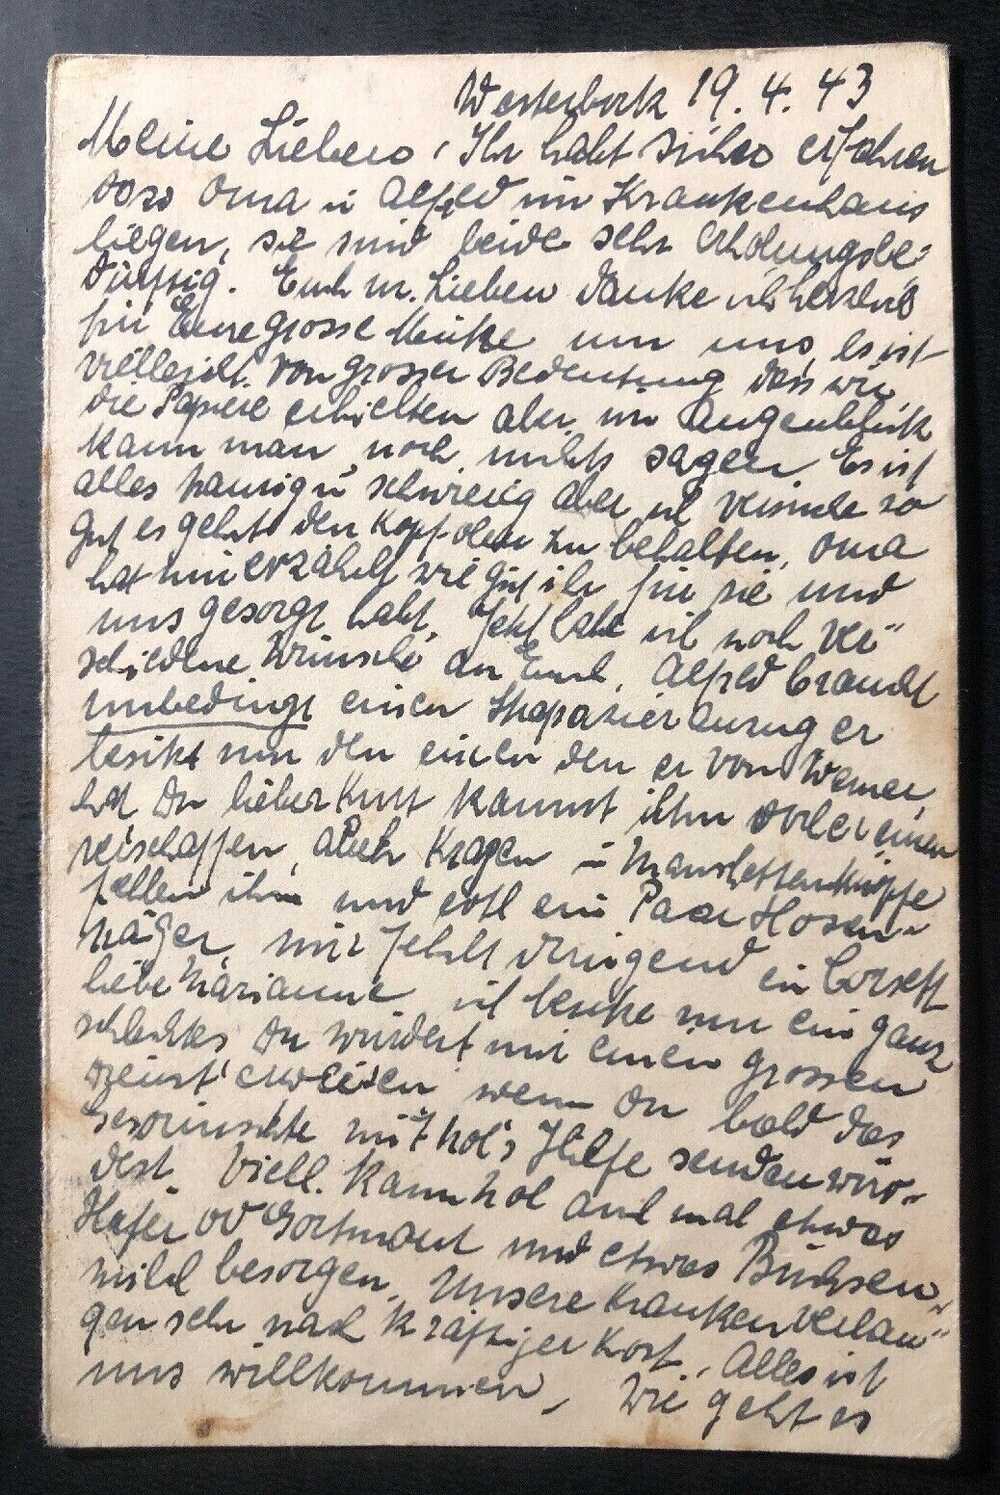 Westerbork 19.4.43
Meine Lieben, Ihr habt sicher erfahren
dass Oma u Alfred im Krankenhaus
liegen, sie sind beide sehr erholungsbe-
dürftig. Euch m. Lieben danke ich herzlich
für Eure grosse Mühe um uns, es ist
vielleicht von grosser Bedeutung dass wir
die Papiere erhielten aber im Augenblick
kann man noch nichts sagen Es ist
alles traurig u schwierig aber ich versuche so
gut es geht den Kopf oben zu behalten. Oma
hat mir erzählt wie gut ihr für sie und
uns gesorgt habt. Jetzt habe ich noch ver-
schiedene Wünsche an Euch. Alfred braucht
unbedingt einen Strapazieranzug er
besitzt nur den einen den er von Werner
hat Du lieber Kurt kannst ihm einen
verschaffen, auch Kragen u Manschettenknöpfe
fehlen ihm und evtl ein Paar Hosen-
träger, mir fehlt dringend ein Corsett
liebe Marianne ich besitze nur ein ganz
schlechtes, Du würdest mir einen grossen
Dienst erweisen wenn Du bald das
Gewünschte mit Hilfe senden wür-
dest. Viell. kann auch mal etwas
Hafer od Gortmout und etwas Büchsen-
milch besorgen. Unsere Kranken verlan-
gen sehr nach kräftiger Kost. Alles ist
uns willkommen. Wie geht es